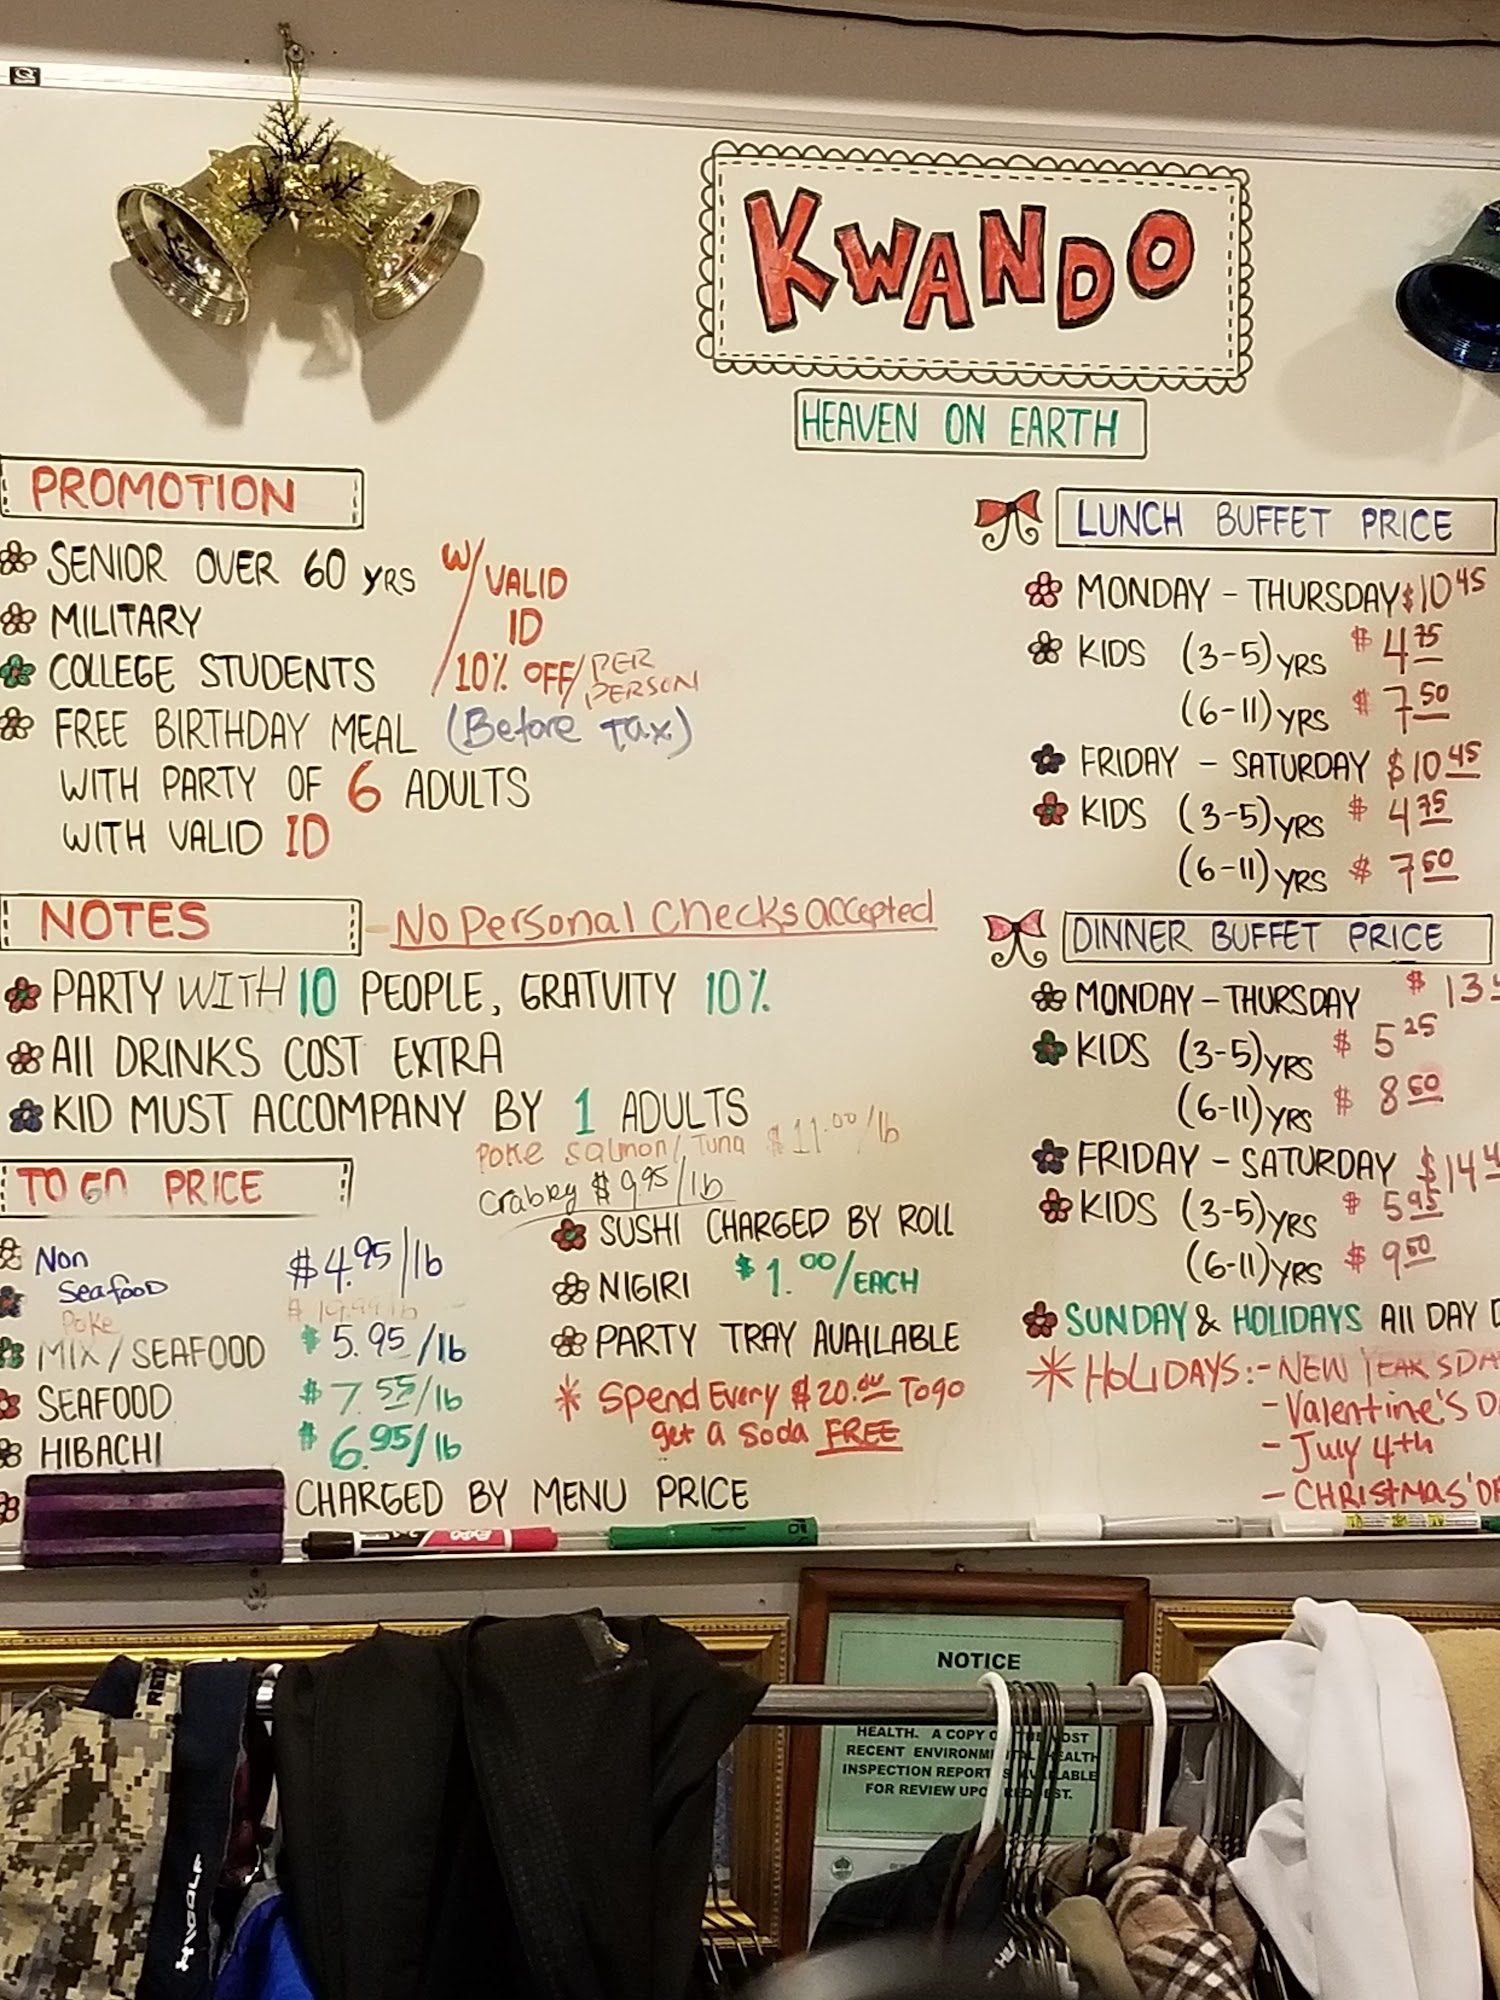 KWANDO
HEAVEN ON EARTH
PROMOTION
SENIOR OVER 60 YRS
MILITARY
COLLEGE STUDENTS
W/VALID
ID
10% OFF/PER
PERSON
FREE BIRTHDAY MEAL (Before Tax)
WITH PARTY OF 6 ADULTS
WITH VALID ID
NOTES - No Personal Checks accepted
PARTY WITH 10 PEOPLE, GRATVITY 10%
All DRINKS COST EXTRA
KID MUST ACCOMPANY BY 1 ADULTS
Poke Salmon/Tuna $11.00/lb
Crabby $9.95/lb
TO GO PRICE
Non $4.95/lb
Seafood
Poke
MIX/SEAFOOD $5.95/lb
SEAFOOD $7.55/lb
HIBACHI $6.95/lb
CHARGED BY MENU PRICE
SUSHI CHARGED BY ROLL
NIGIRI $1.00/EACH
PARTY TRAY AVAILABLE
* Spend Every $20.00 Togo
get a Soda FREE
LUNCH BUFFET PRICE
MONDAY - THURSDAY $10.45
KIDS (3-5) YRS $4.75
(6-11) YRS $7.50
FRIDAY - SATURDAY $10.45
KIDS (3-5) YRS $4.75
(6-11) YRS $7.50
DINNER BUFFET PRICE
MONDAY - THURSDAY $13
KIDS (3-5) YRS $5.25
(6-11) YRS $8.50
FRIDAY - SATURDAY $14.4
KIDS (3-5) YRS $5.95
(6-11) YRS $9.50
SUNDAY & HOLIDAYS All DAY
* HOLIDAYS: - NEW YEARS DA
- Valentine's D
- July 4th
- CHRISTMAS' DA
EXPO
NOTICE
HEALTH. A COPY OF THE MOST
RECENT ENVIRONMENTAL HEALTH
INSPECTION REPORT IS AVAILABLE
FOR REVIEW UPON REQUEST.
HWGOLF